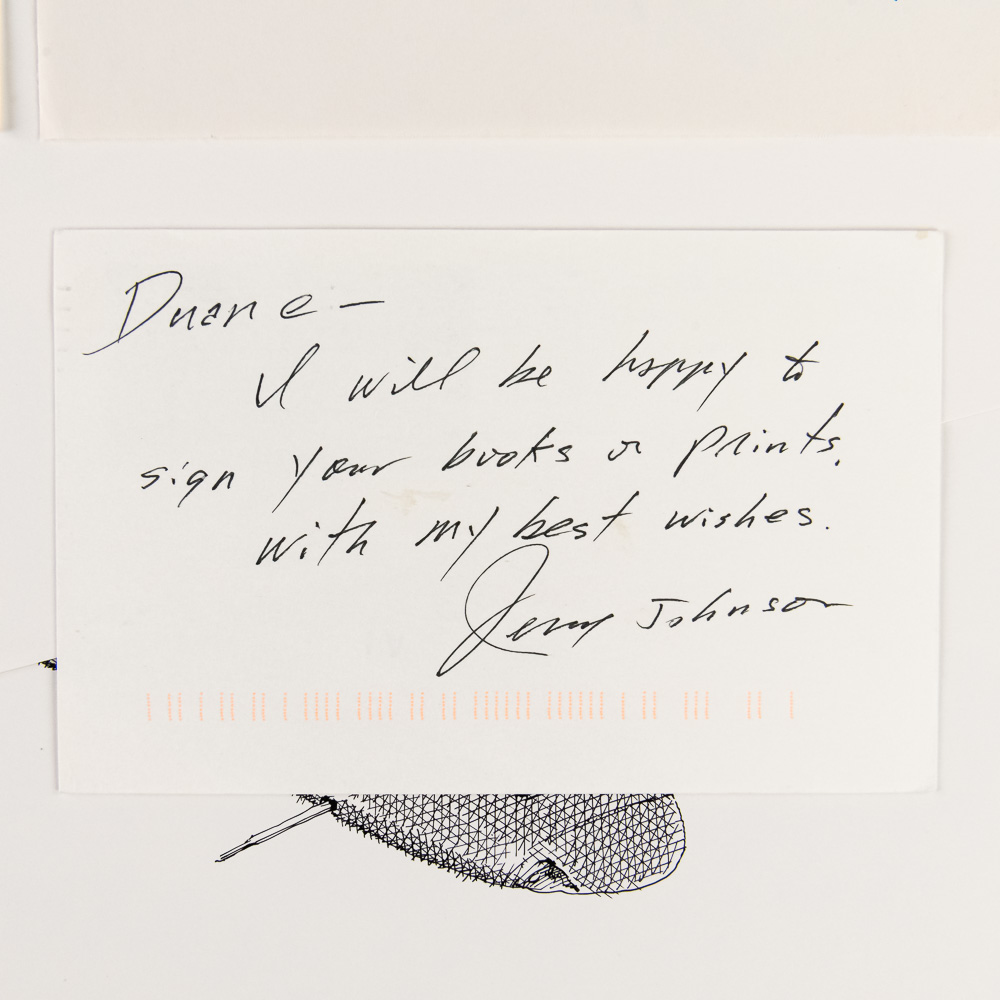 Duane –
I will be happy to
sign your books or prints.
with my best wishes.
Jerry Johnson